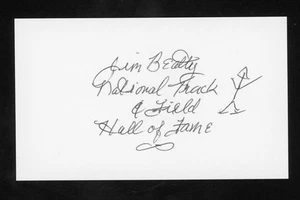 Jim Beatty
National Track
& Field
Hall of Fame